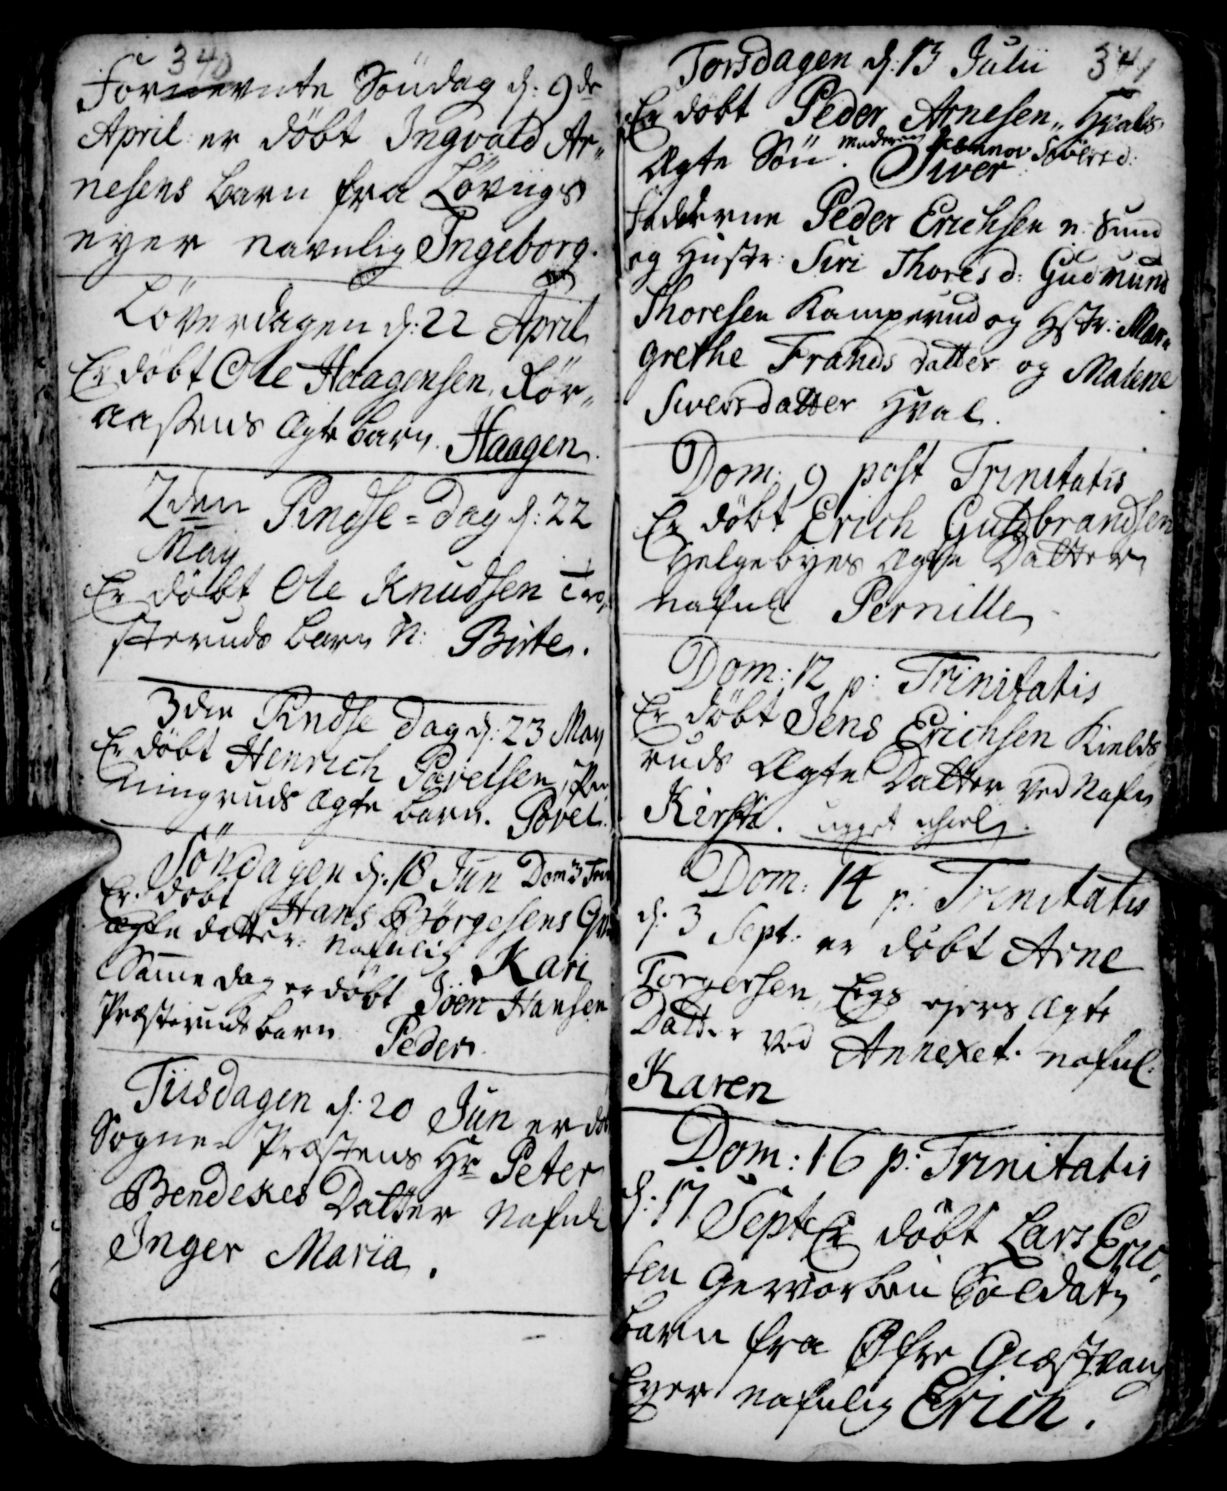 340
Fornevnte Söndag d: 9de
April er döbt Ingvald Ar„
nesens barn fra Lövigs
eyer navnlig Ingeborg.
Löverdagen d: 22 April
Er döbt Ole Haagensen, Rör„
aasens ægte barn. Haagen.
2den Pindse=dag d: 22
May
Er döbt Ole Knudsen Tro„
steruds barn N: Birte.
3die Pindse Dag d: 23 May
Er döbt Henrich Povelsen,
ningruds ægte barn. Povel.
Söndagen d: 18 Jun Dom 3 Trin
Er döbt Hans Börgesens
ægte datter nafnlig Kari
Samme dag er döbt Joen Hansen
Præsterudsbarn Peder.
Tiisdagen d: 20 Jun er döbt
Sogne=Præstens Hr Peter
Bendekes Datter nafnl
Inger Maria.
341
Torsdagen d: 13 Julii
Er döbt Peder Arnesen„ Hvals
Ægte Sön. Siver Moderen Siversd:
Fadderne Peder Erichsen n: Sund
og Hustr: Siri Thoresd: Gudmund
Thoresen Kamperud og Hstr: Mar„
grethe Frands datter og Malene
Siversdatter Hval.
Dom: 9 post Trinitatis
Er döbt Erich Gulbrandsen
Helgebyes ægte Datter
nafnl Pernille
Dom: 12 p: Trinitatis
Er döbt Jens Erichsen Kields
ruds Ægte Datter ved Nafn
Kirsti.
Dom: 14 p: Trinitatis
d: 3 Sept: er döbt Arne
Torgersen, Eigs eyers ægte
Datter ved Annexet. nafnl:
Karen
Dom: 16 p: Trinitatis
d: 17 Sept Er döbt Lars Eric„
sen Gevorben Soldats
barn fra Øfre Giæstvang
Eyer nafnlig Erich.